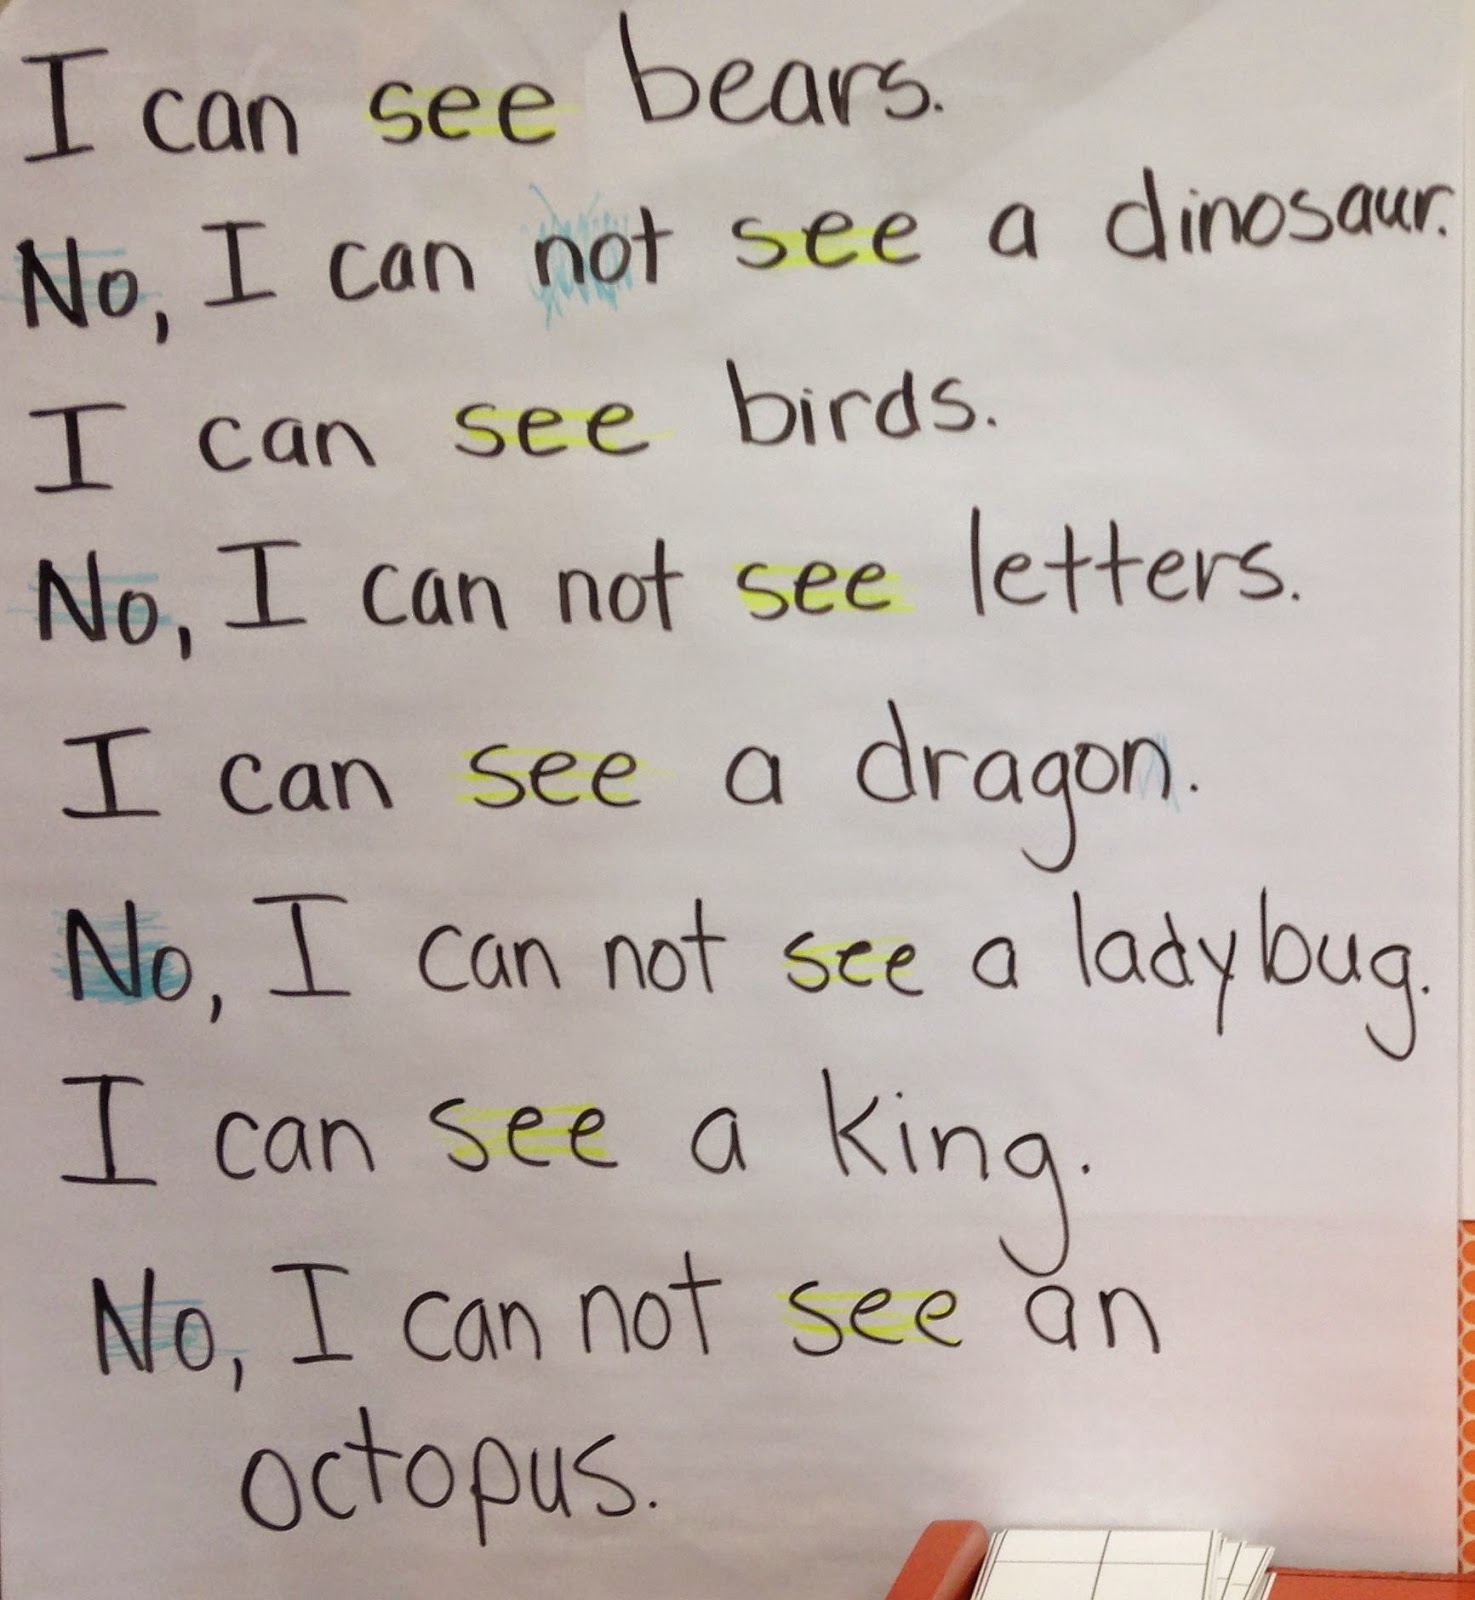 I can see bears.
No, I can not see a dinosaur.
I can see birds.
No, I can not see letters.
I can see a dragon.
No, I can not see a ladybug.
I can see a king.
No, I can not see an
octopus.